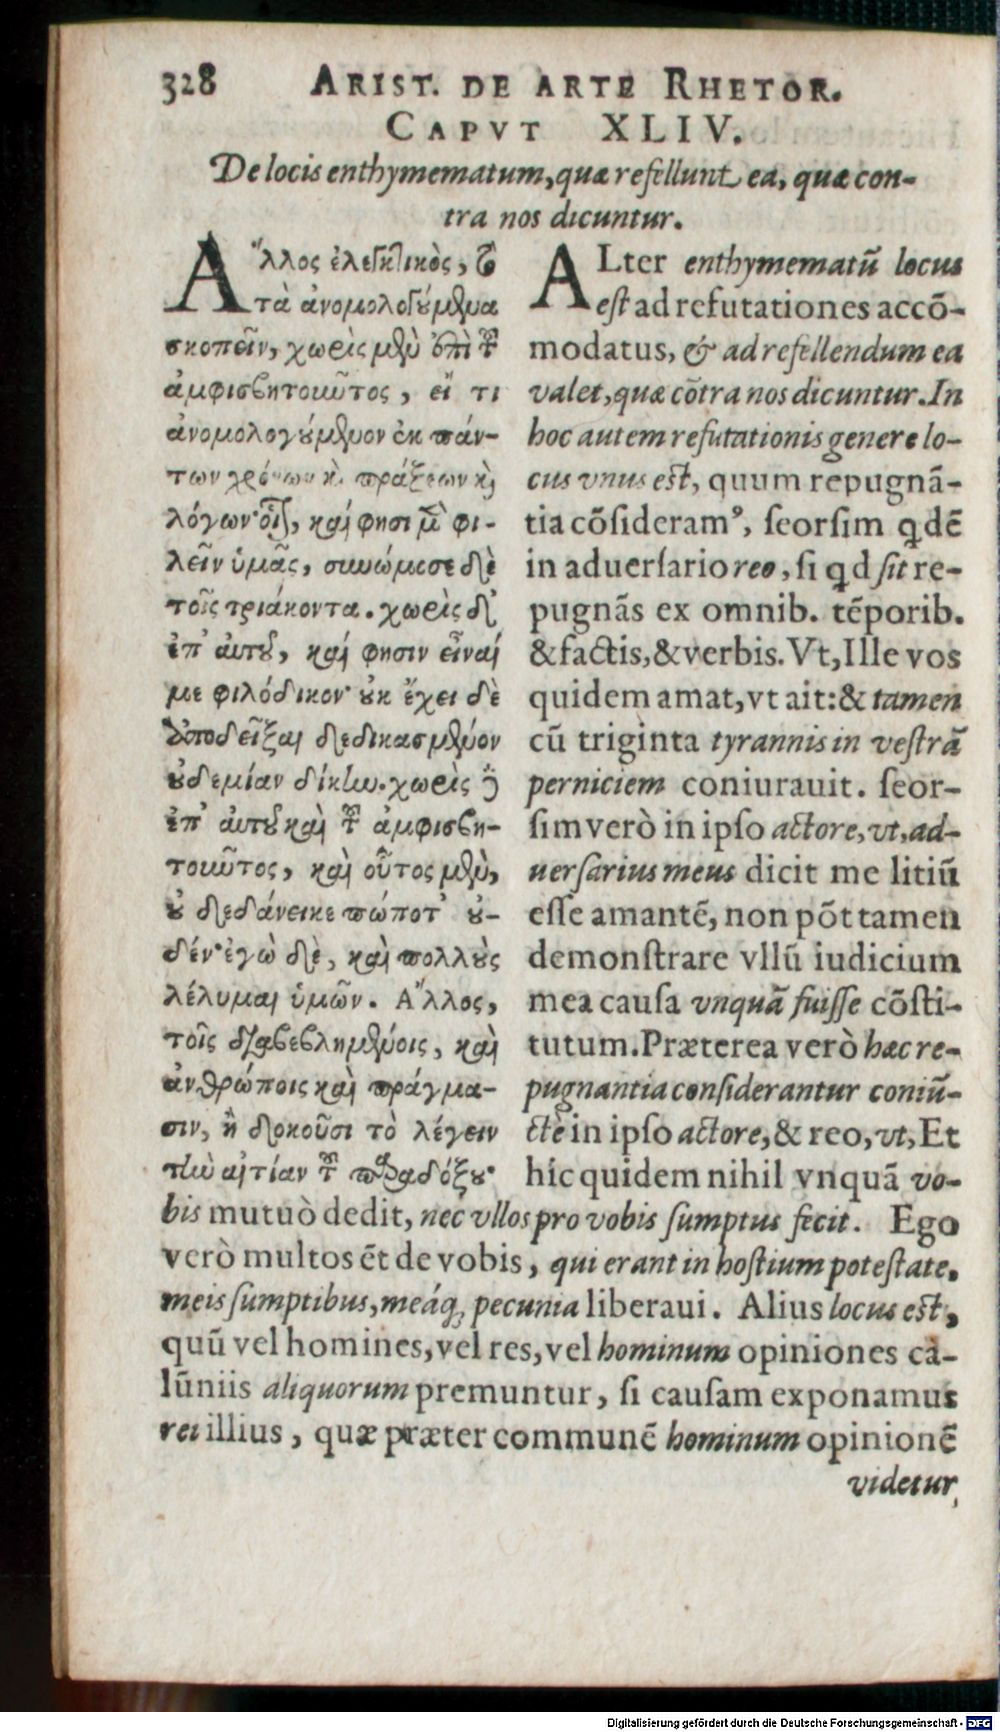 328 ARIST. DE ARTE RHETOR.
CAPVT XLIV.
De locis enthymematum, quæ refellunt ea, quæ con-
tra nos dicuntur.
Ἄλλος ἐλεγκτικὸς, τὸ
τὰ ἀνομολογούμενα
σκοπεῖν, χωρὶς μὲν ἐπὶ τοῦ
ἀμφισβητοῦντος, εἴ τι
ἀνομολογούμενον ἐκ πάν-
των χρόνων κὶ πράξεων κὶ
λόγων· οἷον, καί φησι μὲν φι-
λεῖν ὑμᾶς, συνώμοσε δὲ
τοῖς τριάκοντα. χωρὶς δ'
ἐπ' αὐτοῦ, καί φησιν εἶναί
με φιλόδικον· οὐκ ἔχει δὲ
ἀποδεῖξαι δεδικασμένον
οὐδεμίαν δίκην. χωρὶς δὲ
ἐπ' αὐτοῦ καὶ τοῦ ἀμφισβη-
τοῦντος, καὶ οὗτος μὲν,
οὐ δεδάνεικε πώποτ' οὐ-
δέν· ἐγὼ δὲ, καὶ πολλοὺς
λέλυμαι ὑμῶν. Ἄλλος,
τοῖς διαβεβλημένοις, καὶ
ἀνθρώποις καὶ πράγμα-
σιν, ἢ δοκοῦσι τὸ λέγειν
τὴν αἰτίαν τοῦ παραδόξου·
ALter enthymematū locus
est ad refutationes accō-
modatus, & ad refellendum ea
valet, quæ cōtra nos dicuntur. In
hoc autem refutationis genere lo-
cus vnus est, quum repugnā-
tia cōsideramꝰ, seorsim qdē
in aduersario reo, si qd sit re-
pugnās ex omnib. tēporib.
& factis, & verbis. Vt, Ille vos
quidem amat, vt ait: & tamen
cū triginta tyrannis in vestrā
perniciem coniurauit. seor-
sim verò in ipso actore, vt, ad-
uersarius meus dicit me litiū
esse amantē, non pōt tamen
demonstrare vllū iudicium
mea causa vnquā fuisse cōsti-
tutum. Præterea verò hæc re-
pugnantia considerantur coniū-
ctè in ipso actore, & reo, vt, Et
híc quidem nihil vnquā vo-
bis mutuò dedit, nec vllos pro vobis sumptus fecit. Ego
verò multos ēt de vobis, qui erant in hostium potestate,
meis sumptibus, meáq; pecunia liberaui. Alius locus est,
quū vel homines, vel res, vel hominum opiniones ca-
lūniis aliquorum premuntur, si causam exponamus
rei illius, quæ præter communē hominum opinionē
videtur
Digitalisierung gefördert durch die Deutsche Forschungsgemeinschaft - DFG